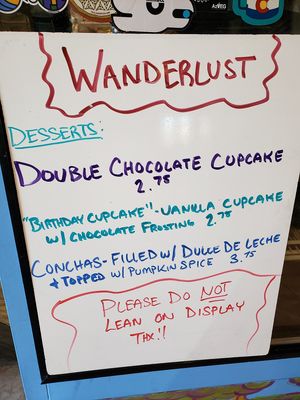 WANDERLUST
DESSERTS:
DOUBLE CHOCOLATE CUPCAKE
2.75
"BIRTHDAY CUPCAKE" - VANILLA CUPCAKE
W/ CHOCOLATE FROSTING 2.75
CONCHAS - FILLED W/ DULCE DE LECHE
+ TOPPED W/ PUMPKIN SPICE 3.75
PLEASE DO NOT
LEAN ON DISPLAY
THX!!